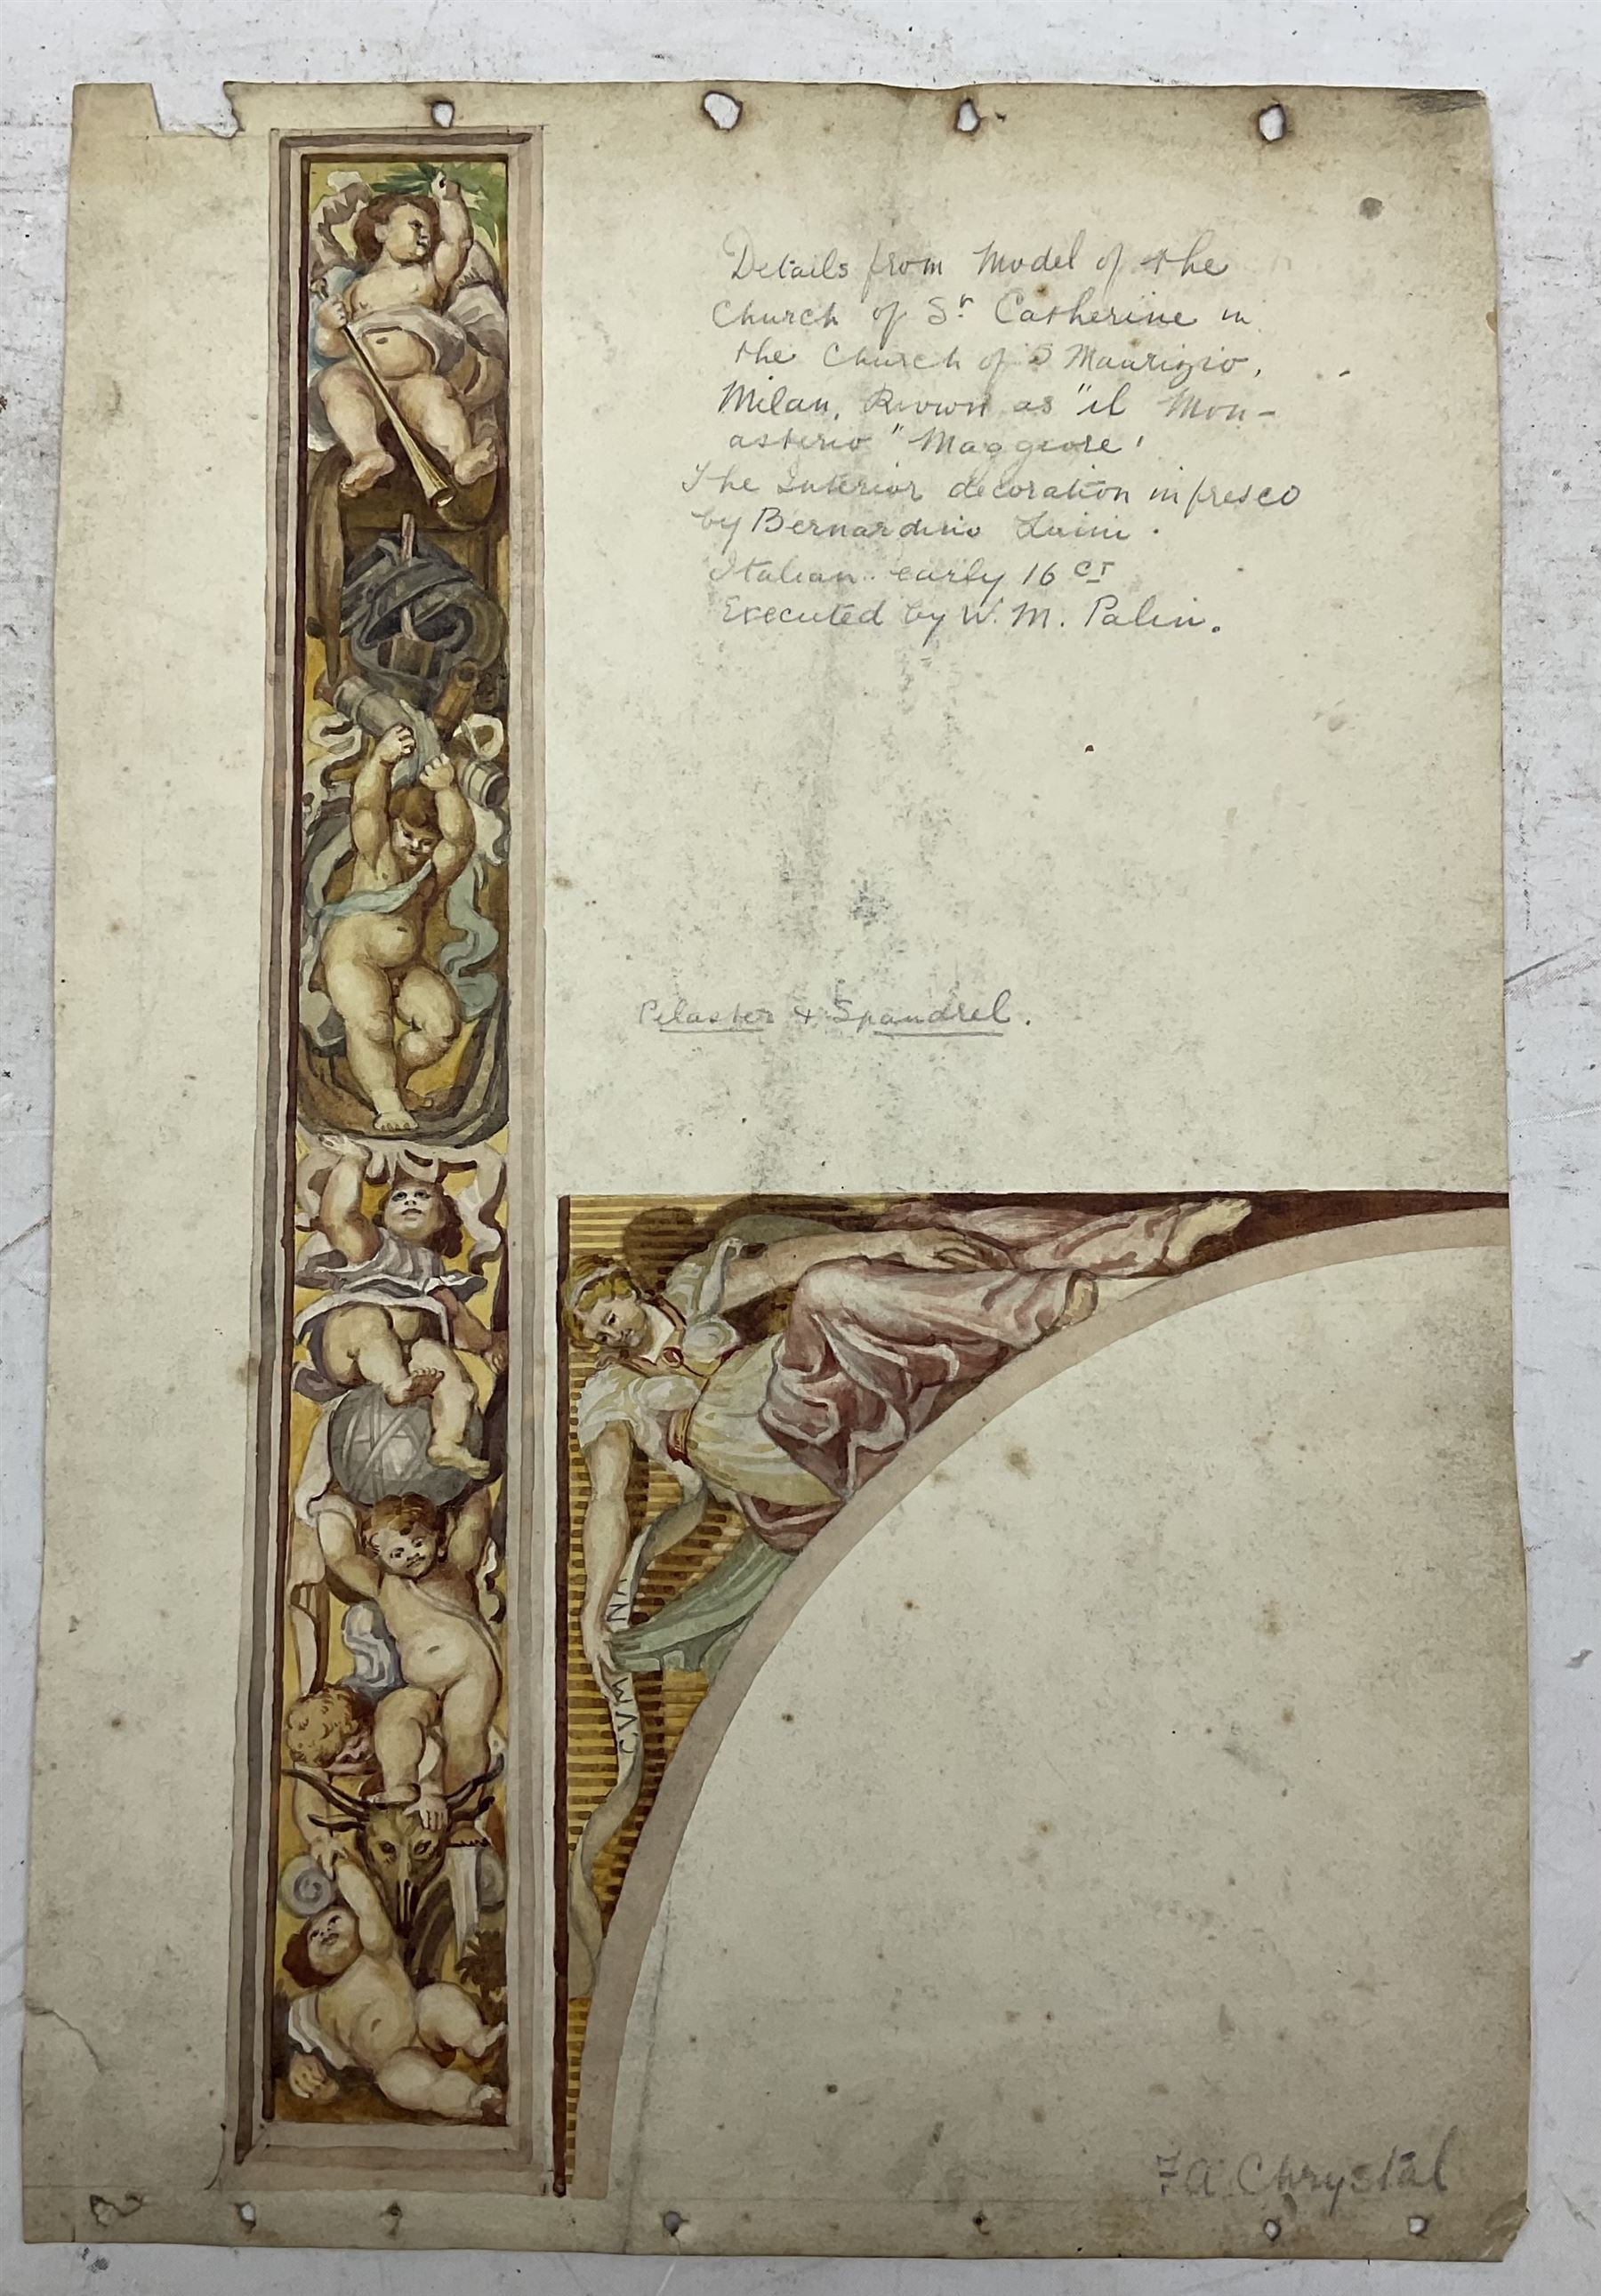 Details from Model of the
Church of St Catherine in
the Church of S Maurizio,
Milan, known as "il Mon-
asterio" Maggiore'
The Interior decoration in fresco
by Bernardino Luini.
Italian early 16 CT
Executed by W. M. Palin.
Pelaster & Spandrel.
CVM NA
F A Chrystal